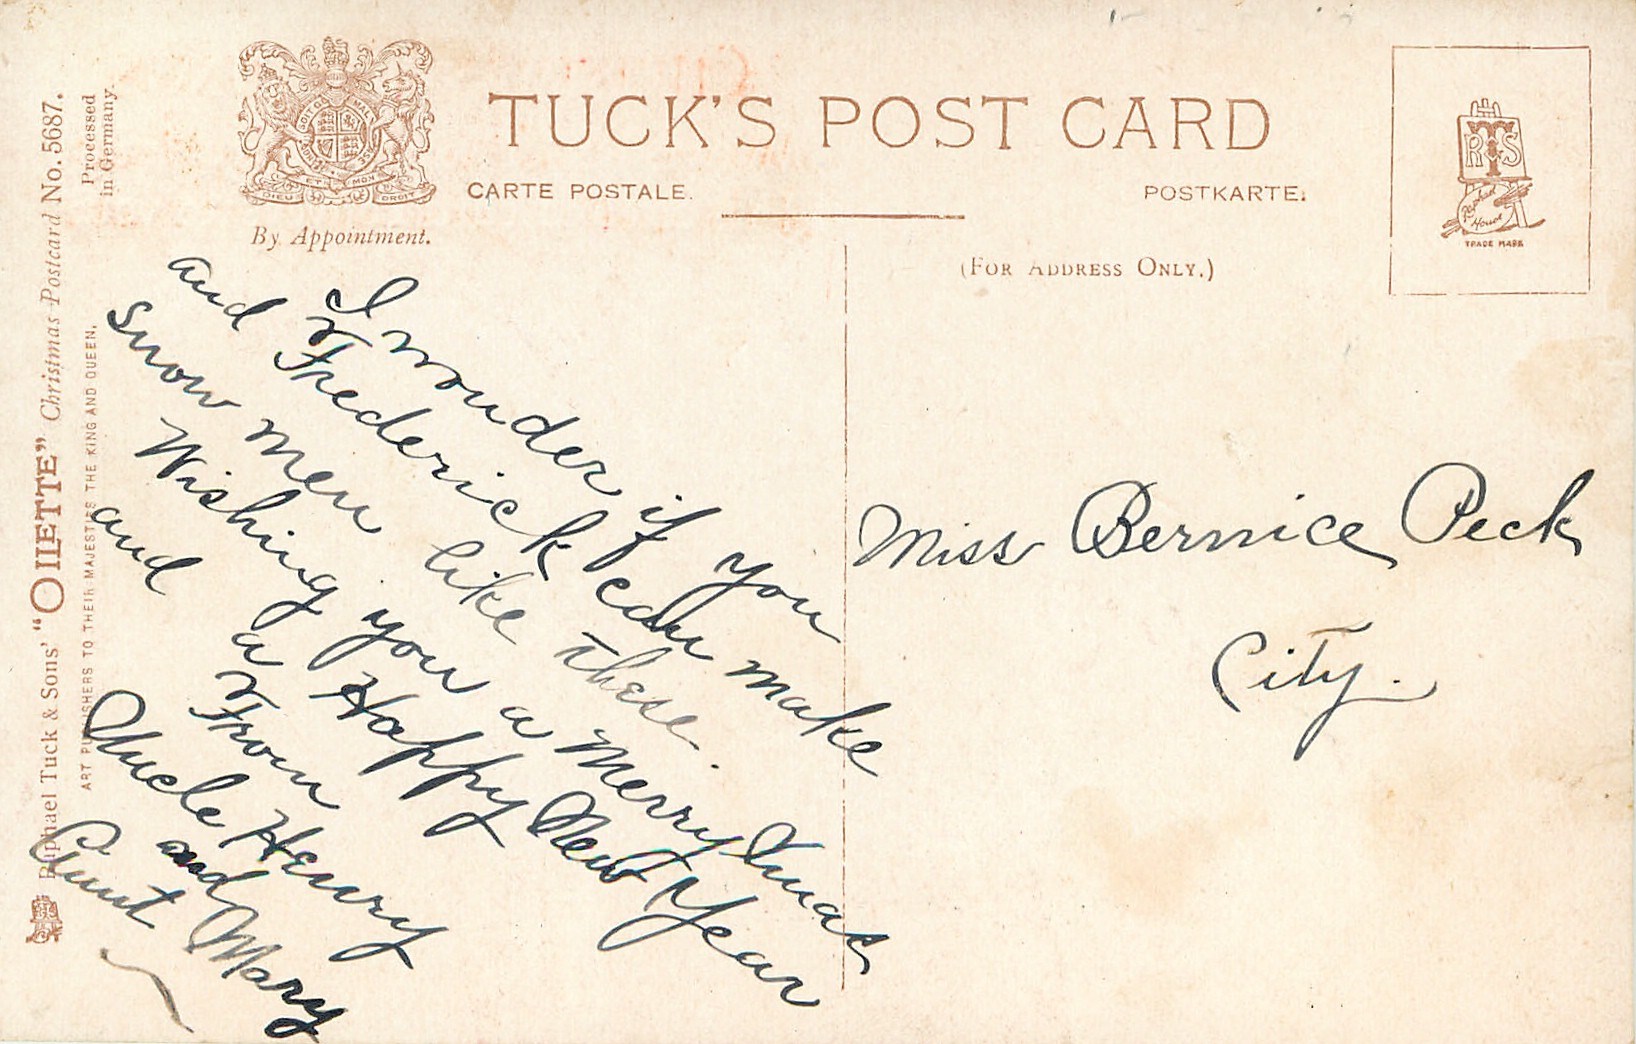 Raphael Tuck & Sons' "OILETTE" Christmas Postcard No. 5687.
ART PUBLISHERS TO THEIR MAJESTIES THE KING AND QUEEN.
Processed
in Germany.
HONI SOIT QUI MAL Y PENSE
DIEU ET MON DROIT
By Appointment.
TUCK'S POST CARD
CARTE POSTALE.
POSTKARTE.
(FOR ADDRESS ONLY.)
RTS
Raphael
House
TRADE MARK
I wonder if you
and Frederick can make
snow men like these.
Wishing you a Merry Xmas
and a Happy New Year
From
Uncle Henry
and
Aunt Mary
Miss Bernice Peck
City.